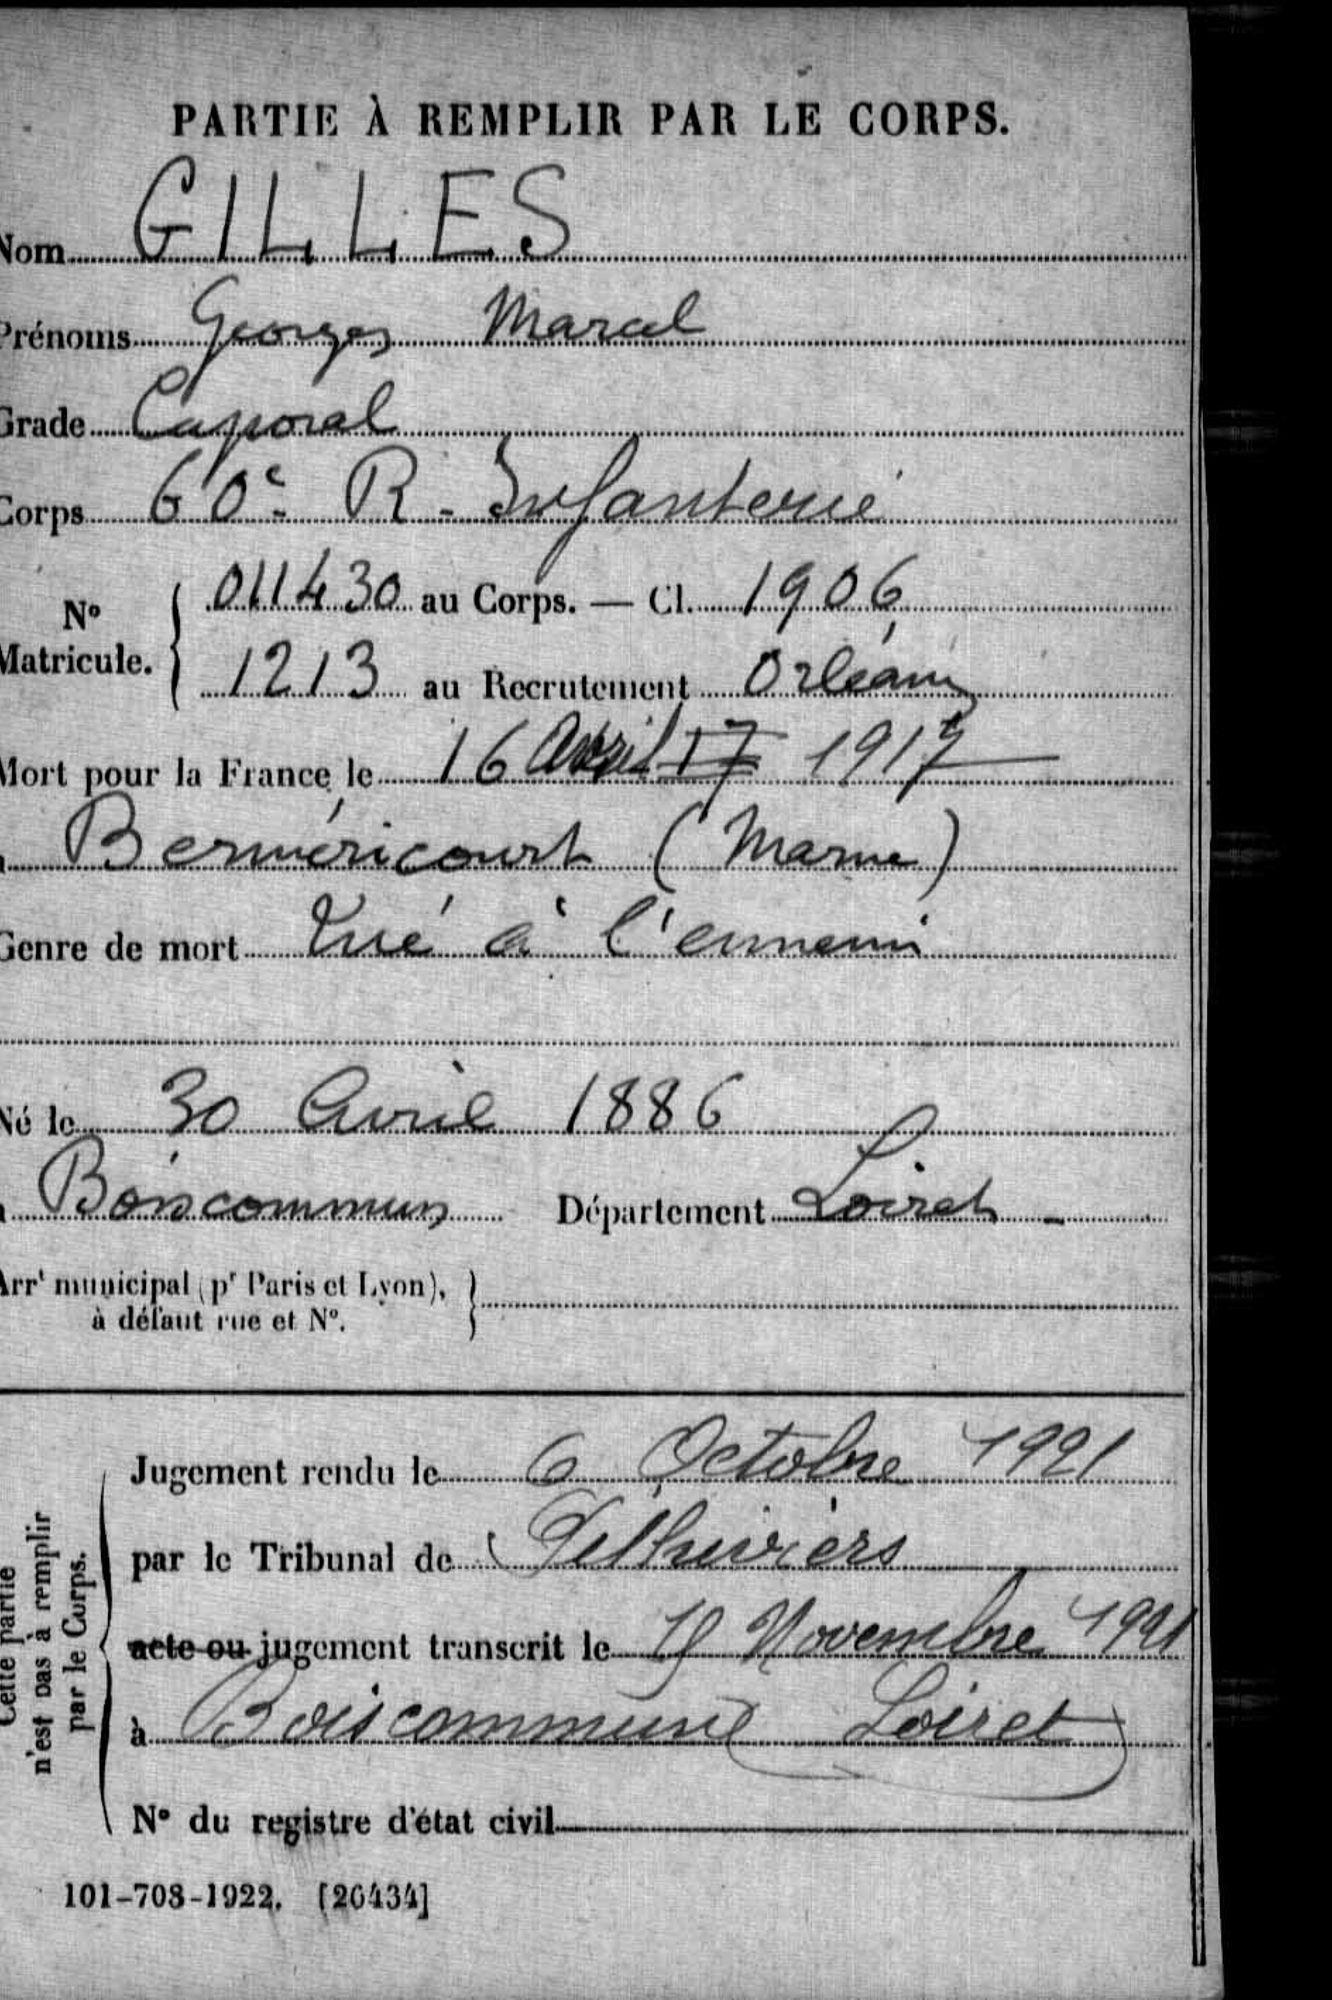 PARTIE À REMPLIR PAR LE CORPS.
Nom GILLES
Prénoms Georges Marcel
Grade Caporal
Corps 60e R. Infanterie
No Matricule. { 011430 au Corps. — Cl. 1906
1213 au Recrutement Orléans
Mort pour la France le 16 Avril 17 1917
à Berméricourt (Marne)
Genre de mort Tué à l'ennemi
Né le 30 Avril 1886
à Boiscommun Département Loiret -
Arrt municipal (pr Paris et Lyon), }
à défaut rue et No.
Cette partie
n'est pas à remplir
par le Corps.
Jugement rendu le 6 Octobre 1921
par le Tribunal de Pithiviers
acte ou jugement transcrit le Novembre 1921
à Boiscommun (Loiret)
No du registre d'état civil
101-708-1922. [26434]